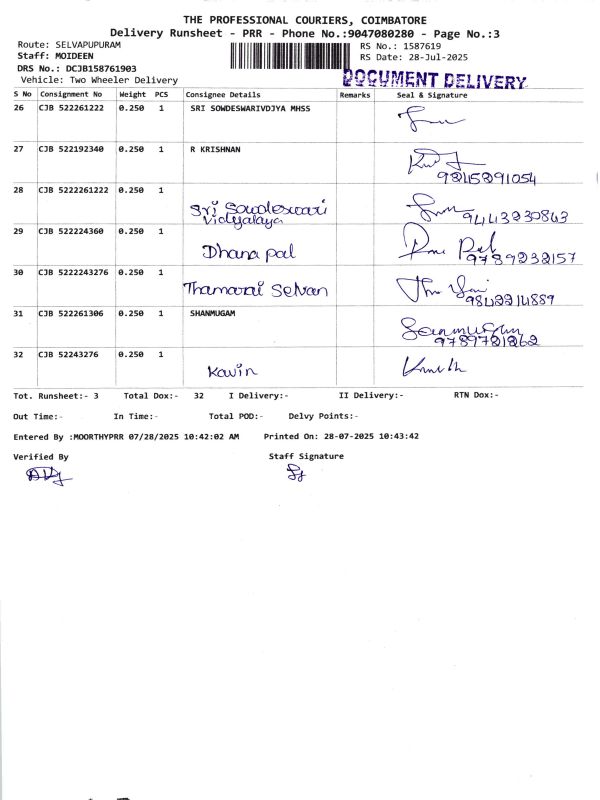 THE PROFESSIONAL COURIERS, COIMBATORE
Delivery Runsheet - PRR - Phone No.:9047080280 - Page No.:3
Route: SELVAPUPURAM
Staff: MOIDEEN
DRS No.: DCJB158761903
Vehicle: Two Wheeler Delivery
RS No.: 1587619
RS Date: 28-Jul-2025
DOCUMENT DELIVERY
S No Consignment No Weight PCS Consignee Details Remarks Seal & Signature
26 CJB 522261222 0.250 1 SRI SOWDESWARIVDJYA MHSS
27 CJB 522192340 0.250 1 R KRISHNAN
9245291054
28 CJB 5222261222 0.250 1
Sri Sowdeswari
Vidyalaya
9443230843
29 CJB 522224360 0.250 1
Dhana pal
9789232157
30 CJB 5222243276 0.250 1
Thamarai Selvan
9842214889
31 CJB 522261306 0.250 1 SHANMUGAM
Shanmugam
9789721262
32 CJB 52243276 0.250 1
Kavin
Tot. Runsheet:- 3 Total Dox:- 32 I Delivery:- II Delivery:- RTN Dox:-
Out Time:- In Time:- Total POD:- Delvy Points:-
Entered By :MOORTHYPRR 07/28/2025 10:42:02 AM Printed On: 28-07-2025 10:43:42
Verified By Staff Signature